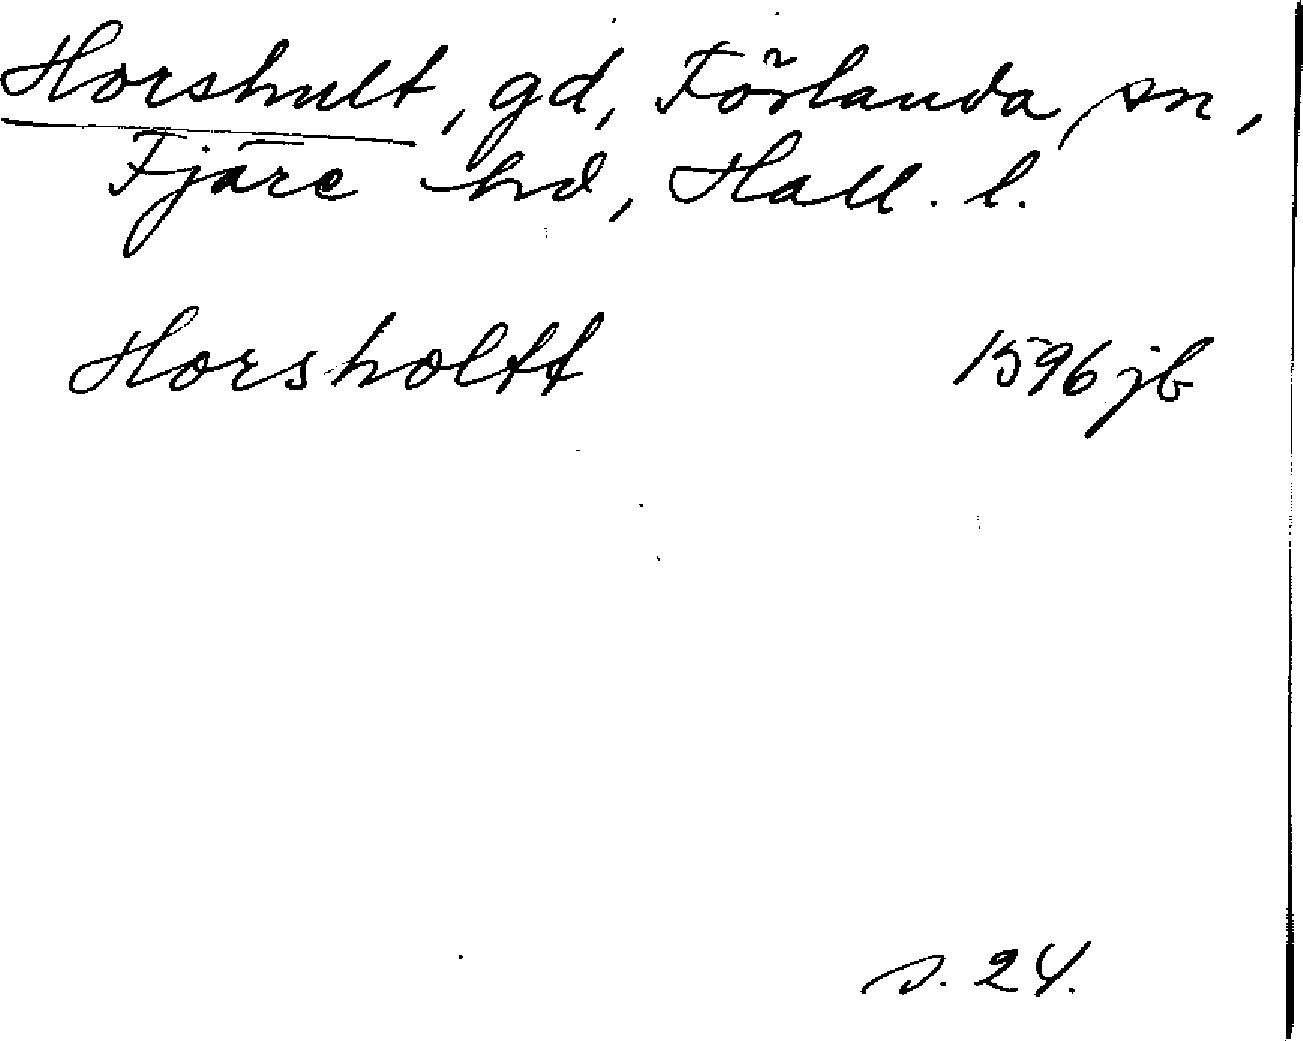 Horshult, gd, Förlanda sn,
Fjäre hd, Hall. l.
Horsholtt 1596 jb
s. 24.